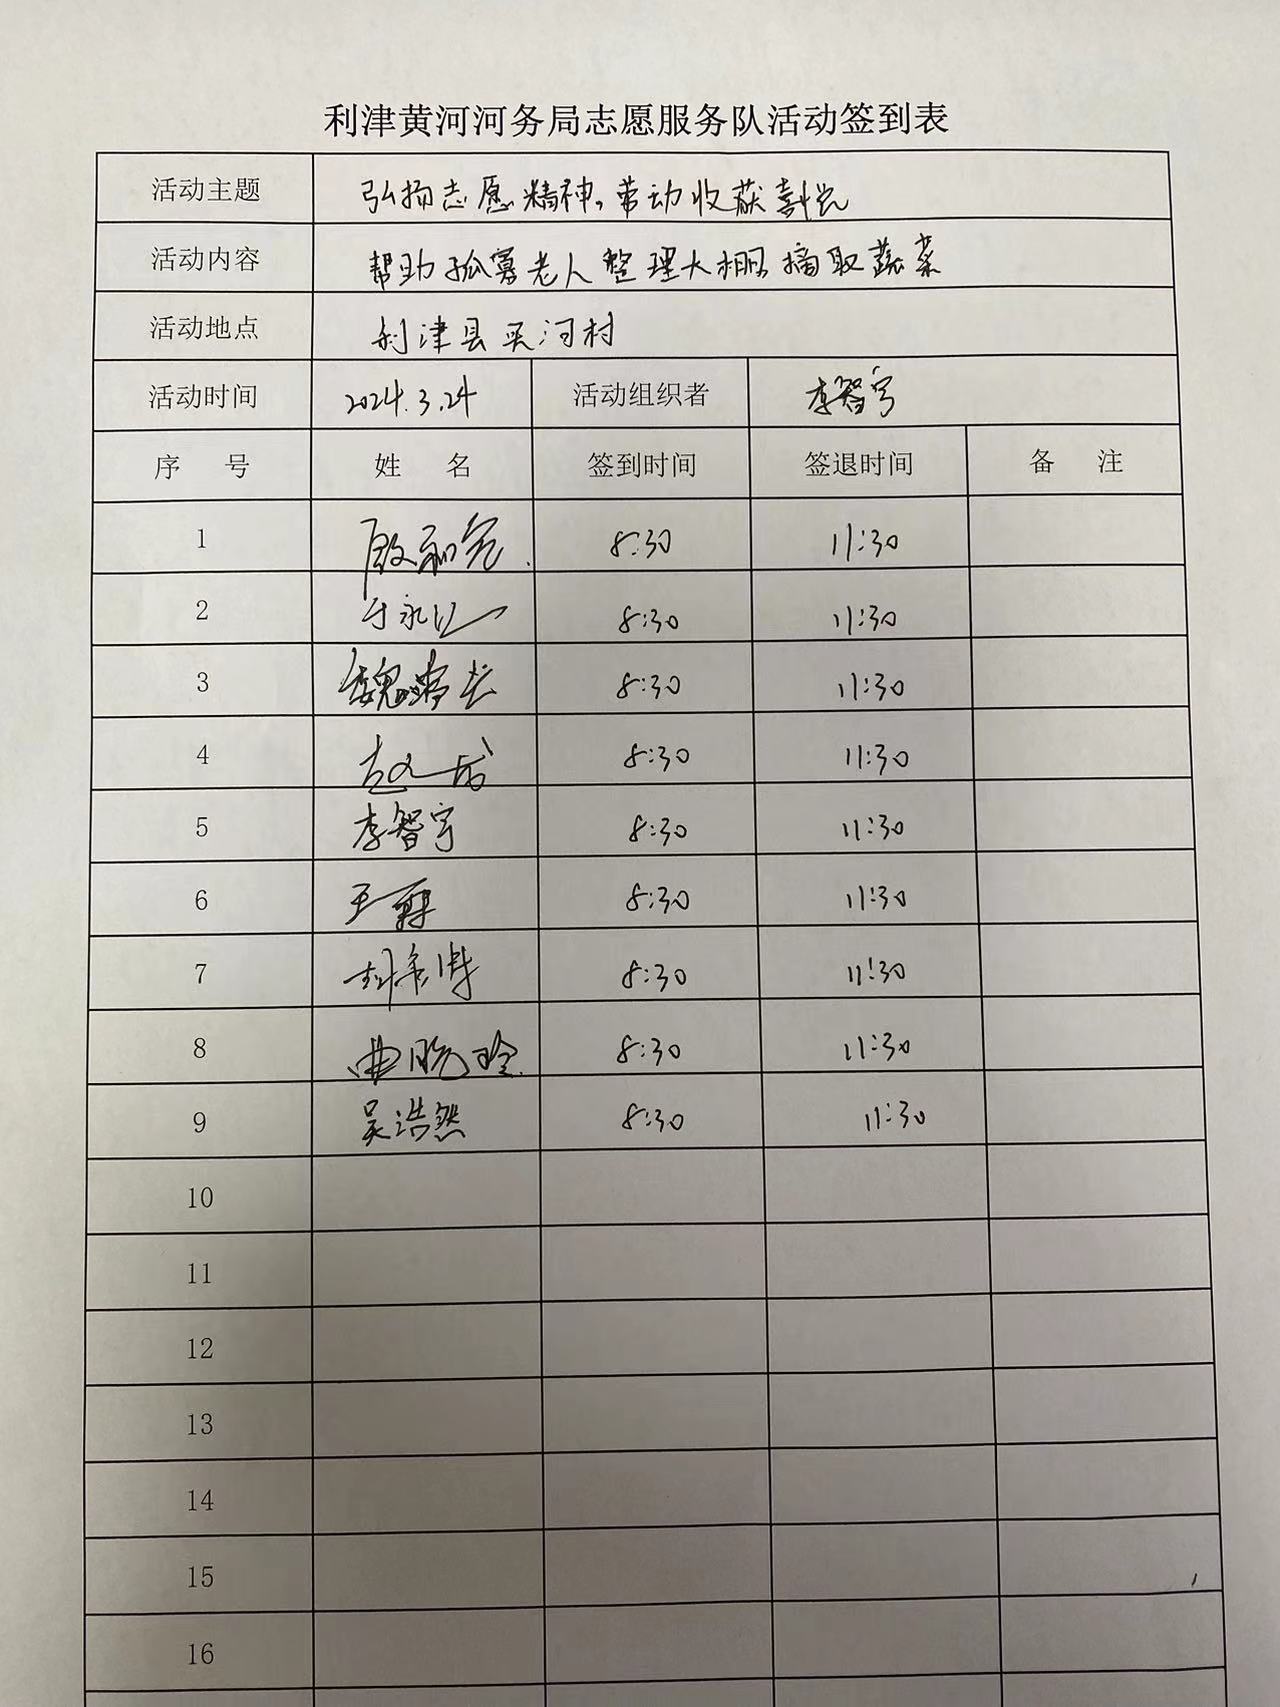 利津黄河河务局志愿服务队活动签到表
活动主题 弘扬志愿精神,劳动收获喜悦
活动内容 帮助孤寡老人整理大棚,摘取蔬菜
活动地点 利津县买河村
活动时间 2024.3.24 活动组织者 李智宇
序号 姓名 签到时间 签退时间 备注
1 8:30 11:30
2 于永 8:30 11:30
3 魏 8:30 11:30
4 赵 8:30 11:30
5 李智宇 8:30 11:30
6 王 8:30 11:30
7 8:30 11:30
8 曲晓玲 8:30 11:30
9 吴浩然 8:30 11:30
10
11
12
13
14
15
16